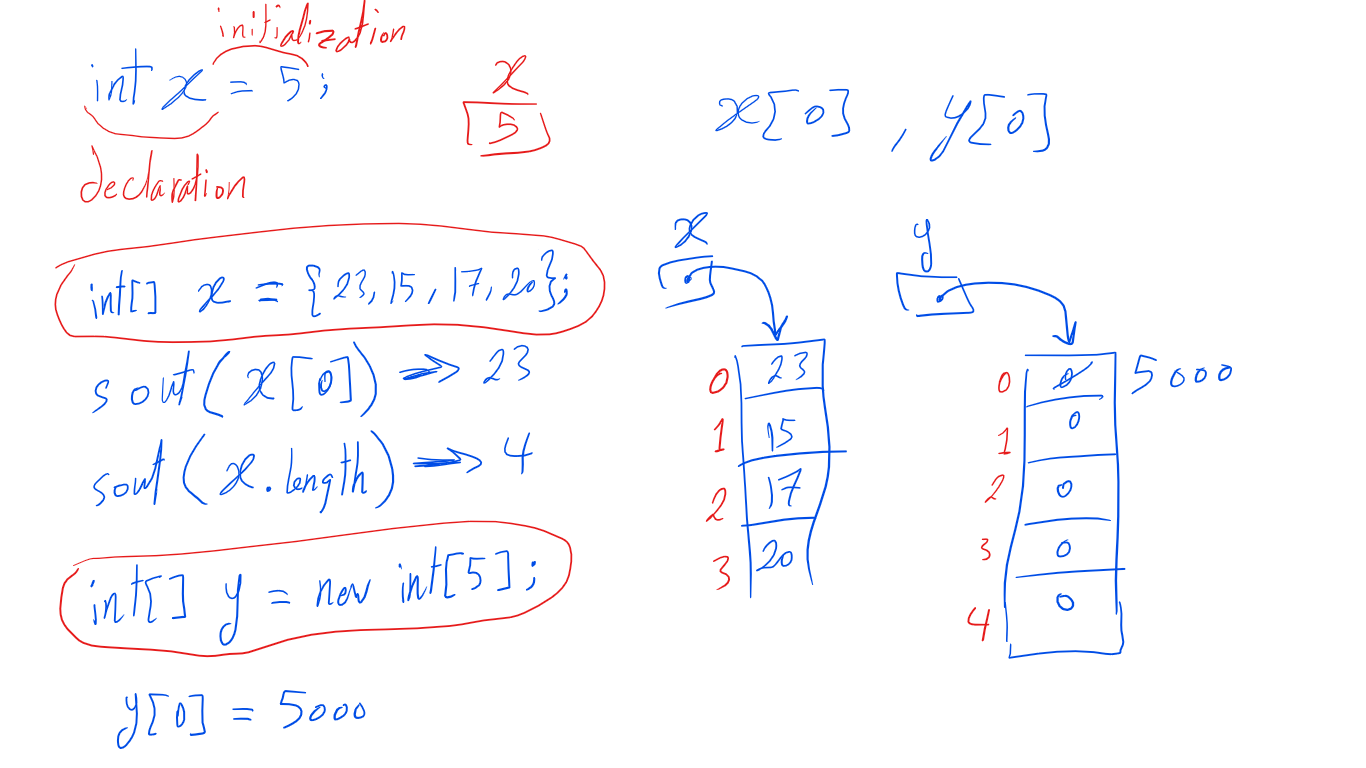 initialization
int x = 5;
declaration
x
5
x[0] , y[0]
int[] x = {23, 15, 17, 20};
sout(x[0]) → 23
sout(x.length) → 4
int[] y = new int[5];
y[0] = 5000
x
0 23
1 15
2 17
3 20
y
0 0 5000
1 0
2 0
3 0
4 0